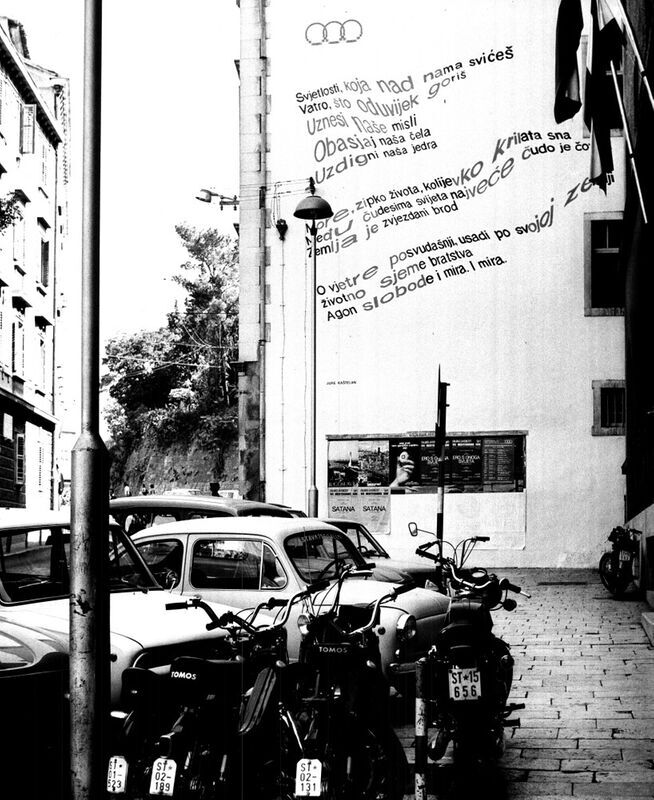 Svjetlosti, koja nad nama svićeš
Vatro, što oduvijek goriš
Uznesi naše misli
Obasjaj naša čela
Uzdigni naša jedra
More, zipko života, kolijevko krilata sna
Među čudesima svijeta najveće čudo je čo
Zemlja je zvjezdani brod
O vjetre posvudašnji, usadi po svojoj ze
životno sjeme bratstva
Agon slobode i mira. I mira.
JURE KAŠTELAN
ERO S ONOGA
SVIJETA
ERO S ONOGA
SVIJETA
SATANA
SATANA
TOMOS
TOMOS
ST★15
656
ST★
01-
523
ST★
02-
189
ST★
02-
131